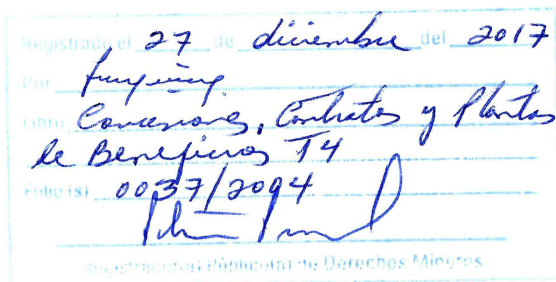 Registrado el 27 de diciembre del 2017
Por
Libro Concesiones, Contratos y Plantas
de Beneficios T4
Folio(s) 0037/2094
Registrador(a) Público(a) de Derechos Mineros